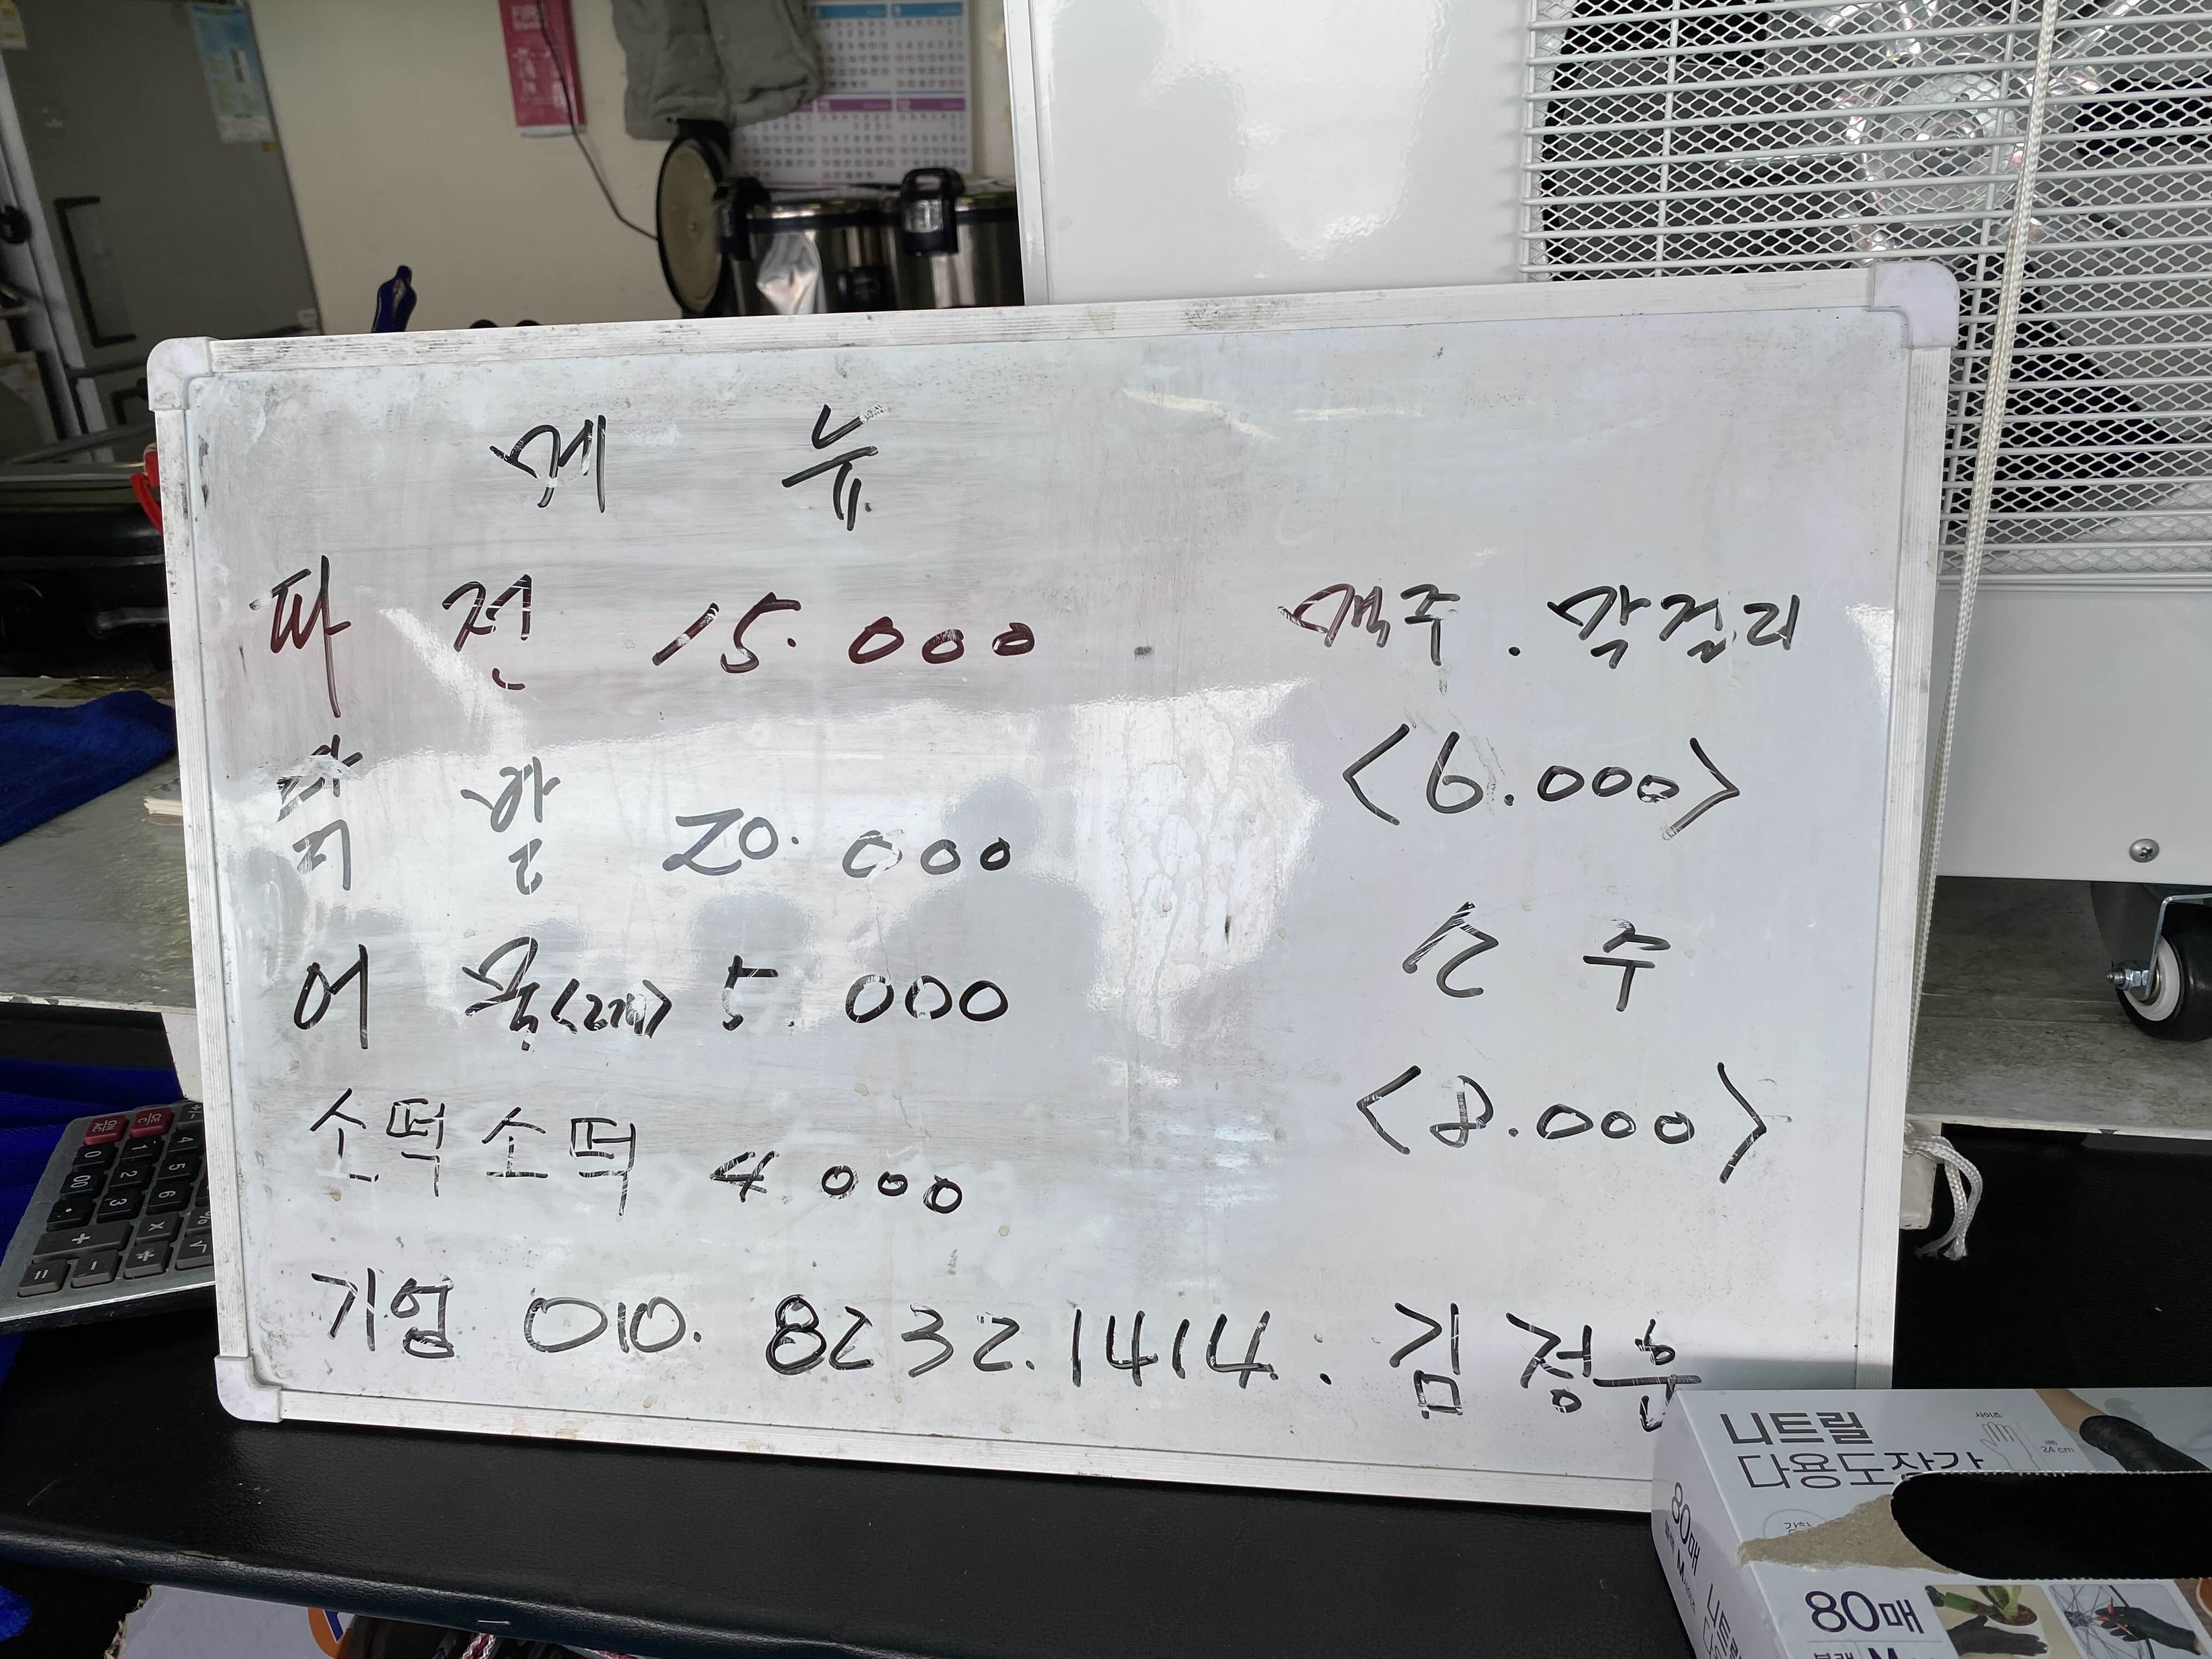 메 뉴
파 전 15.000
맥주 . 막걸리
<6.000>
20.000
어 묵<2개> 5.000
수
<8.000>
소떡소떡 4.000
기업 010. 8232.1414. 김정윤
니트릴
다용도장갑
사이즈
24 cm
80매
80매
M